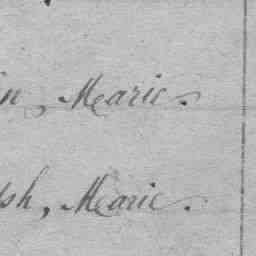 in, Marie.
sh, Marie.